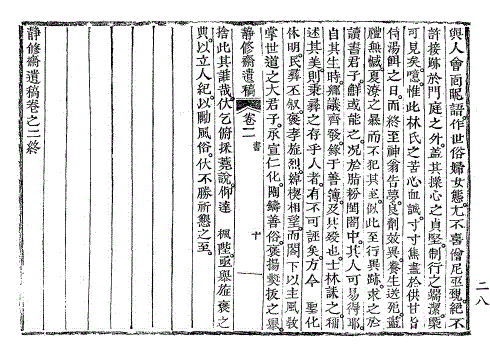 與人會面昵語作世俗婦女態尤不喜僧尼巫覡絶不
許接跡於門庭之外盖其操心之貞堅制行之端潔槩
可見矣噫惟此林氏之苦心血誠寸寸焦盡於供甘旨
侍湯餌之日而終至神翁告夢良劑效異養生送死盖
體無憾夏潦之暴而不犯其 似此至行異跡求之於
讀書君子鮮或能之况於脂粉閨閤中其人可易得耶
自其生時鄕議齊發錄于善簿及其歿也士林誄之稱
述其美則秉彝之存乎人者有不可誣矣方今 聖化
休明民彝丕叙褒孝旌烈綽楔相望而閤下以主風敎
掌世道之大君子承宣仁化陶鑄善俗褒揚 拔之擧
靜修齋遺稿 卷二 書 十
捨此其誰哉伏乞俯採蕘說倘達 楓陛亟擧旌褒之
典以立人紀以勵風俗伏不勝祈懇之至
靜修齋遺稿卷之二終
二八